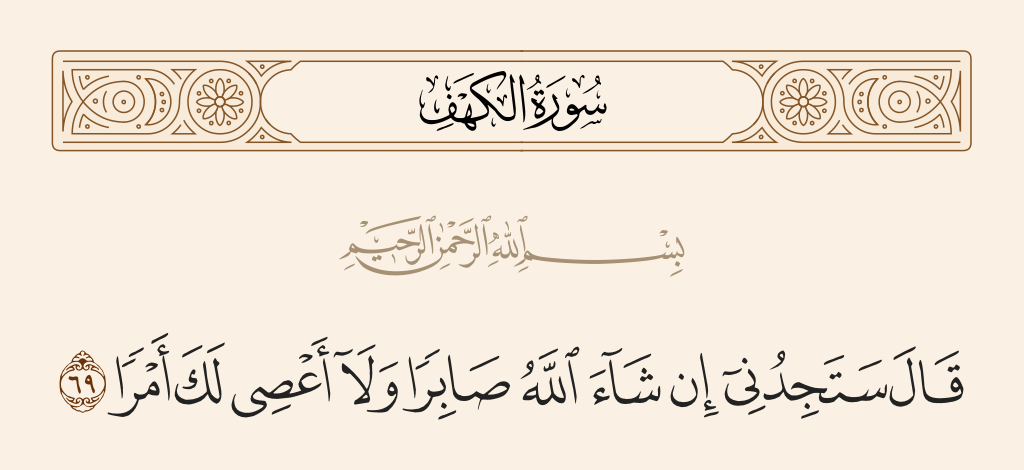 سُورَةُ الكَهْفِ
بِسْمِ ٱللَّهِ ٱلرَّحْمَٰنِ ٱلرَّحِيمِ
قَالَ سَتَجِدُنِىٓ إِن شَآءَ ٱللَّهُ صَابِرًا وَلَآ أَعْصِى لَكَ أَمْرًا ٦٩